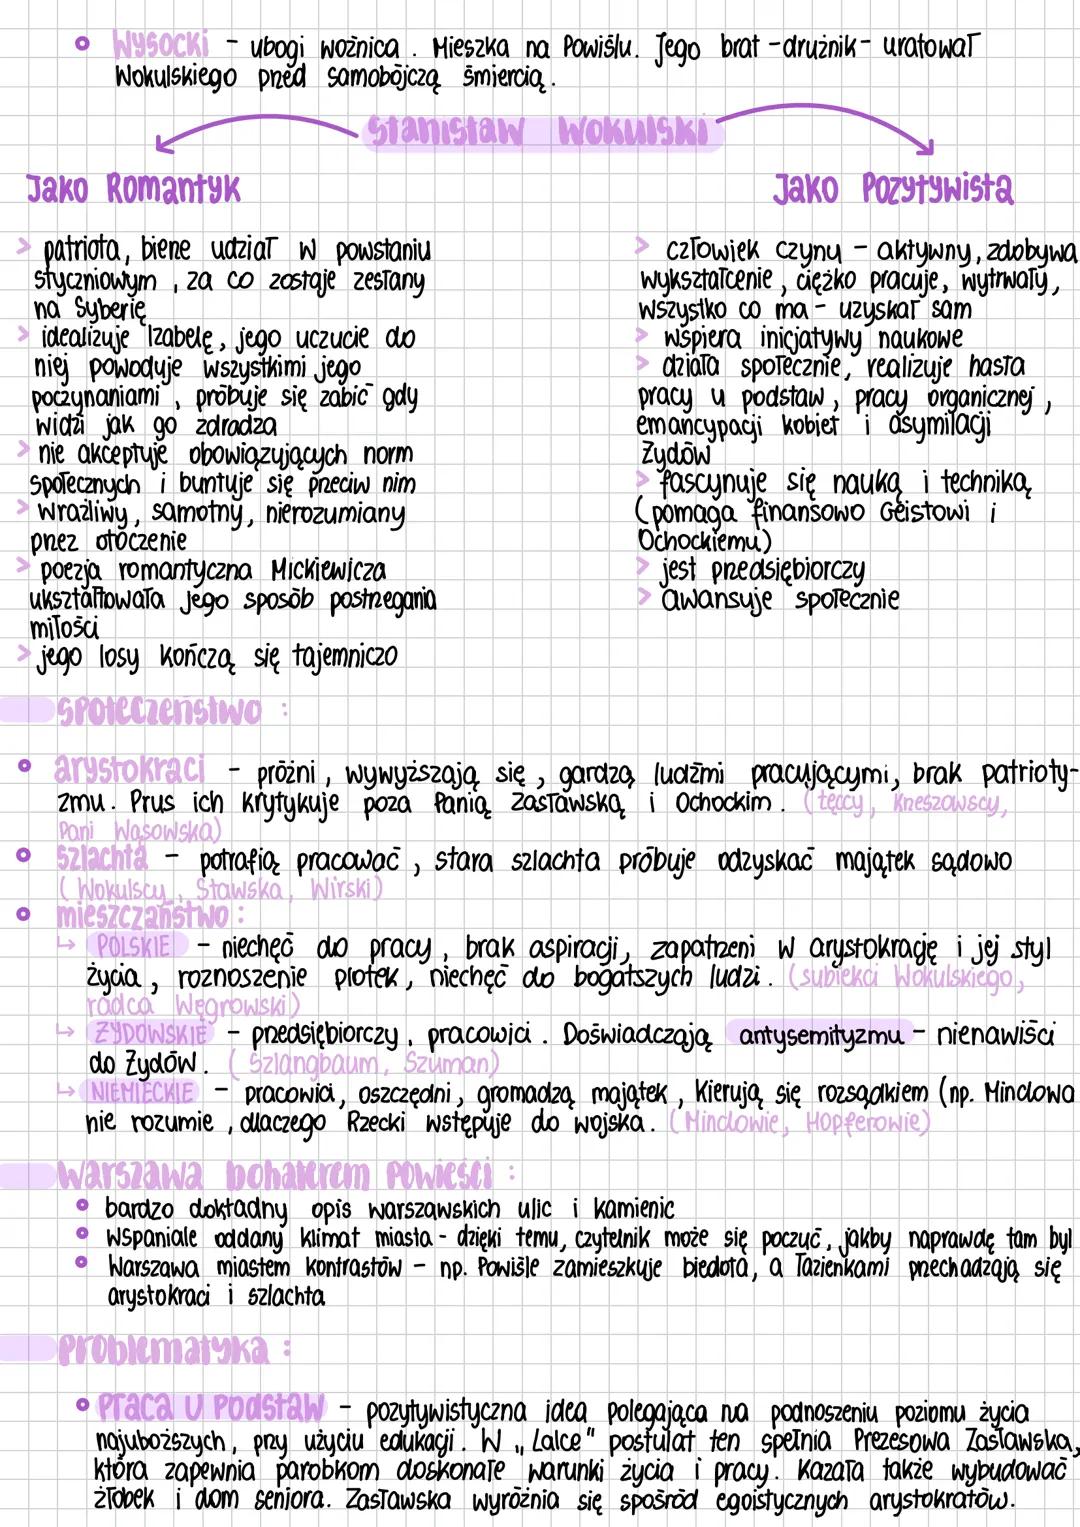 Wysocki - ubogi woźnica. Mieszka na Powiślu. Jego brat - drużnik - uratował
Wokulskiego przed samobójczą śmiercią.
Stanisław Wokulski
Jako Romantyk
> patriota, bierze udział w powstaniu
styczniowym, za co zostaje zesłany
na Syberię
> idealizuje Izabelę, jego uczucie do
niej powoduje wszystkimi jego
poczynaniami, próbuje się zabić gdy
widzi jak go zdradza
> nie akceptuje obowiązujących norm
społecznych i buntuje się przeciw nim
> wrażliwy, samotny, nierozumiany
przez otoczenie
> poezja romantyczna Mickiewicza
ukształtowała jego sposób postrzegania
miłości
> jego losy kończą się tajemniczo
Jako Pozytywista
> człowiek czynu - aktywny, zdobywa
wykształcenie, ciężko pracuje, wytrwały,
wszystko co ma - uzyskał sam
> wspiera inicjatywy naukowe
> działa społecznie, realizuje hasła
pracy u podstaw, pracy organicznej,
emancypacji kobiet i asymilacji
Żydów
> fascynuje się nauką i techniką
(pomaga finansowo Geistowi i
Ochockiemu)
> jest przedsiębiorczy
> awansuje społecznie
społeczeństwo :
arystokraci - próżni, wywyższają się, gardzą ludźmi pracującymi, brak patrioty-
zmu. Prus ich krytykuje poza Panią Zasławską i Ochockim. (Łęccy, Krzeszowscy,
Pani Wąsowska)
szlachta - potrafią pracować, stara szlachta próbuje odzyskać majątek sądowo
(Wokulscy, Stawska, Wirski)
mieszczaństwo :
↳ POLSKIE - niechęć do pracy, brak aspiracji, zapatrzeni w arystokrację i jej styl
życia, roznoszenie plotek, niechęć do bogatszych ludzi. (subiekci Wokulskiego,
radca Węgrowski)
↳ ŻYDOWSKIE - przedsiębiorczy, pracowici. Doświadczają antysemityzmu - nienawiści
do Żydów. (Szlangbaum, Szuman)
↳ NIEMIECKIE - pracowici, oszczędni, gromadzą majątek, kierują się rozsądkiem (np. Minclowa
nie rozumie, dlaczego Rzecki wstępuje do wojska. (Minclowie, Hopferowie)
Warszawa bohaterem powieści :
bardzo dokładny opis warszawskich ulic i kamienic
wspaniale oddany klimat miasta - dzięki temu, czytelnik może się poczuć, jakby naprawdę tam był
Warszawa miastem kontrastów - np. Powiśle zamieszkuje biedota, a Łazienkami przechadzają się
arystokraci i szlachta
Problematyka :
Praca u Podstaw - pozytywistyczna idea polegająca na podnoszeniu poziomu życia
najuboższych, przy użyciu edukacji. W „Lalce" postulat ten spełnia Prezesowa Zasławska,
która zapewnia parobkom doskonałe warunki życia i pracy. Kazała także wybudować
żłobek i dom seniora. Zasławska wyróżnia się spośród egoistycznych arystokratów.